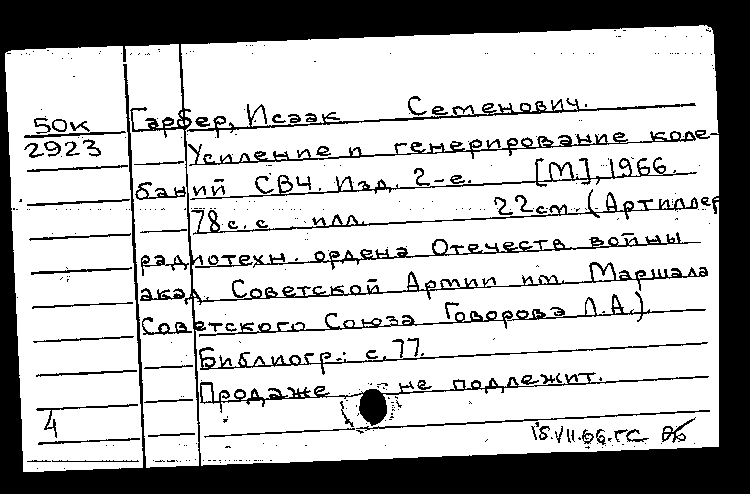 50к Гарбер, Исаак Семенович.
2923 Усиление и генерирование коле-
баний СВЧ. Изд. 2-е. [М.], 1966.
78 с. с илл. 22 см. (Артиллер
радиотехн. ордена Отечеств войны
акад. Советской Армии им. Маршала
Советского Союза Говорова Л.А.).
Библиогр.: с. 77.
Продаже не подлежит.
4
15.VII.66.ГС